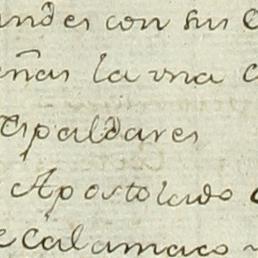 andes con sus
eñas la una
Espaldares
Apostolado
e Calamaco